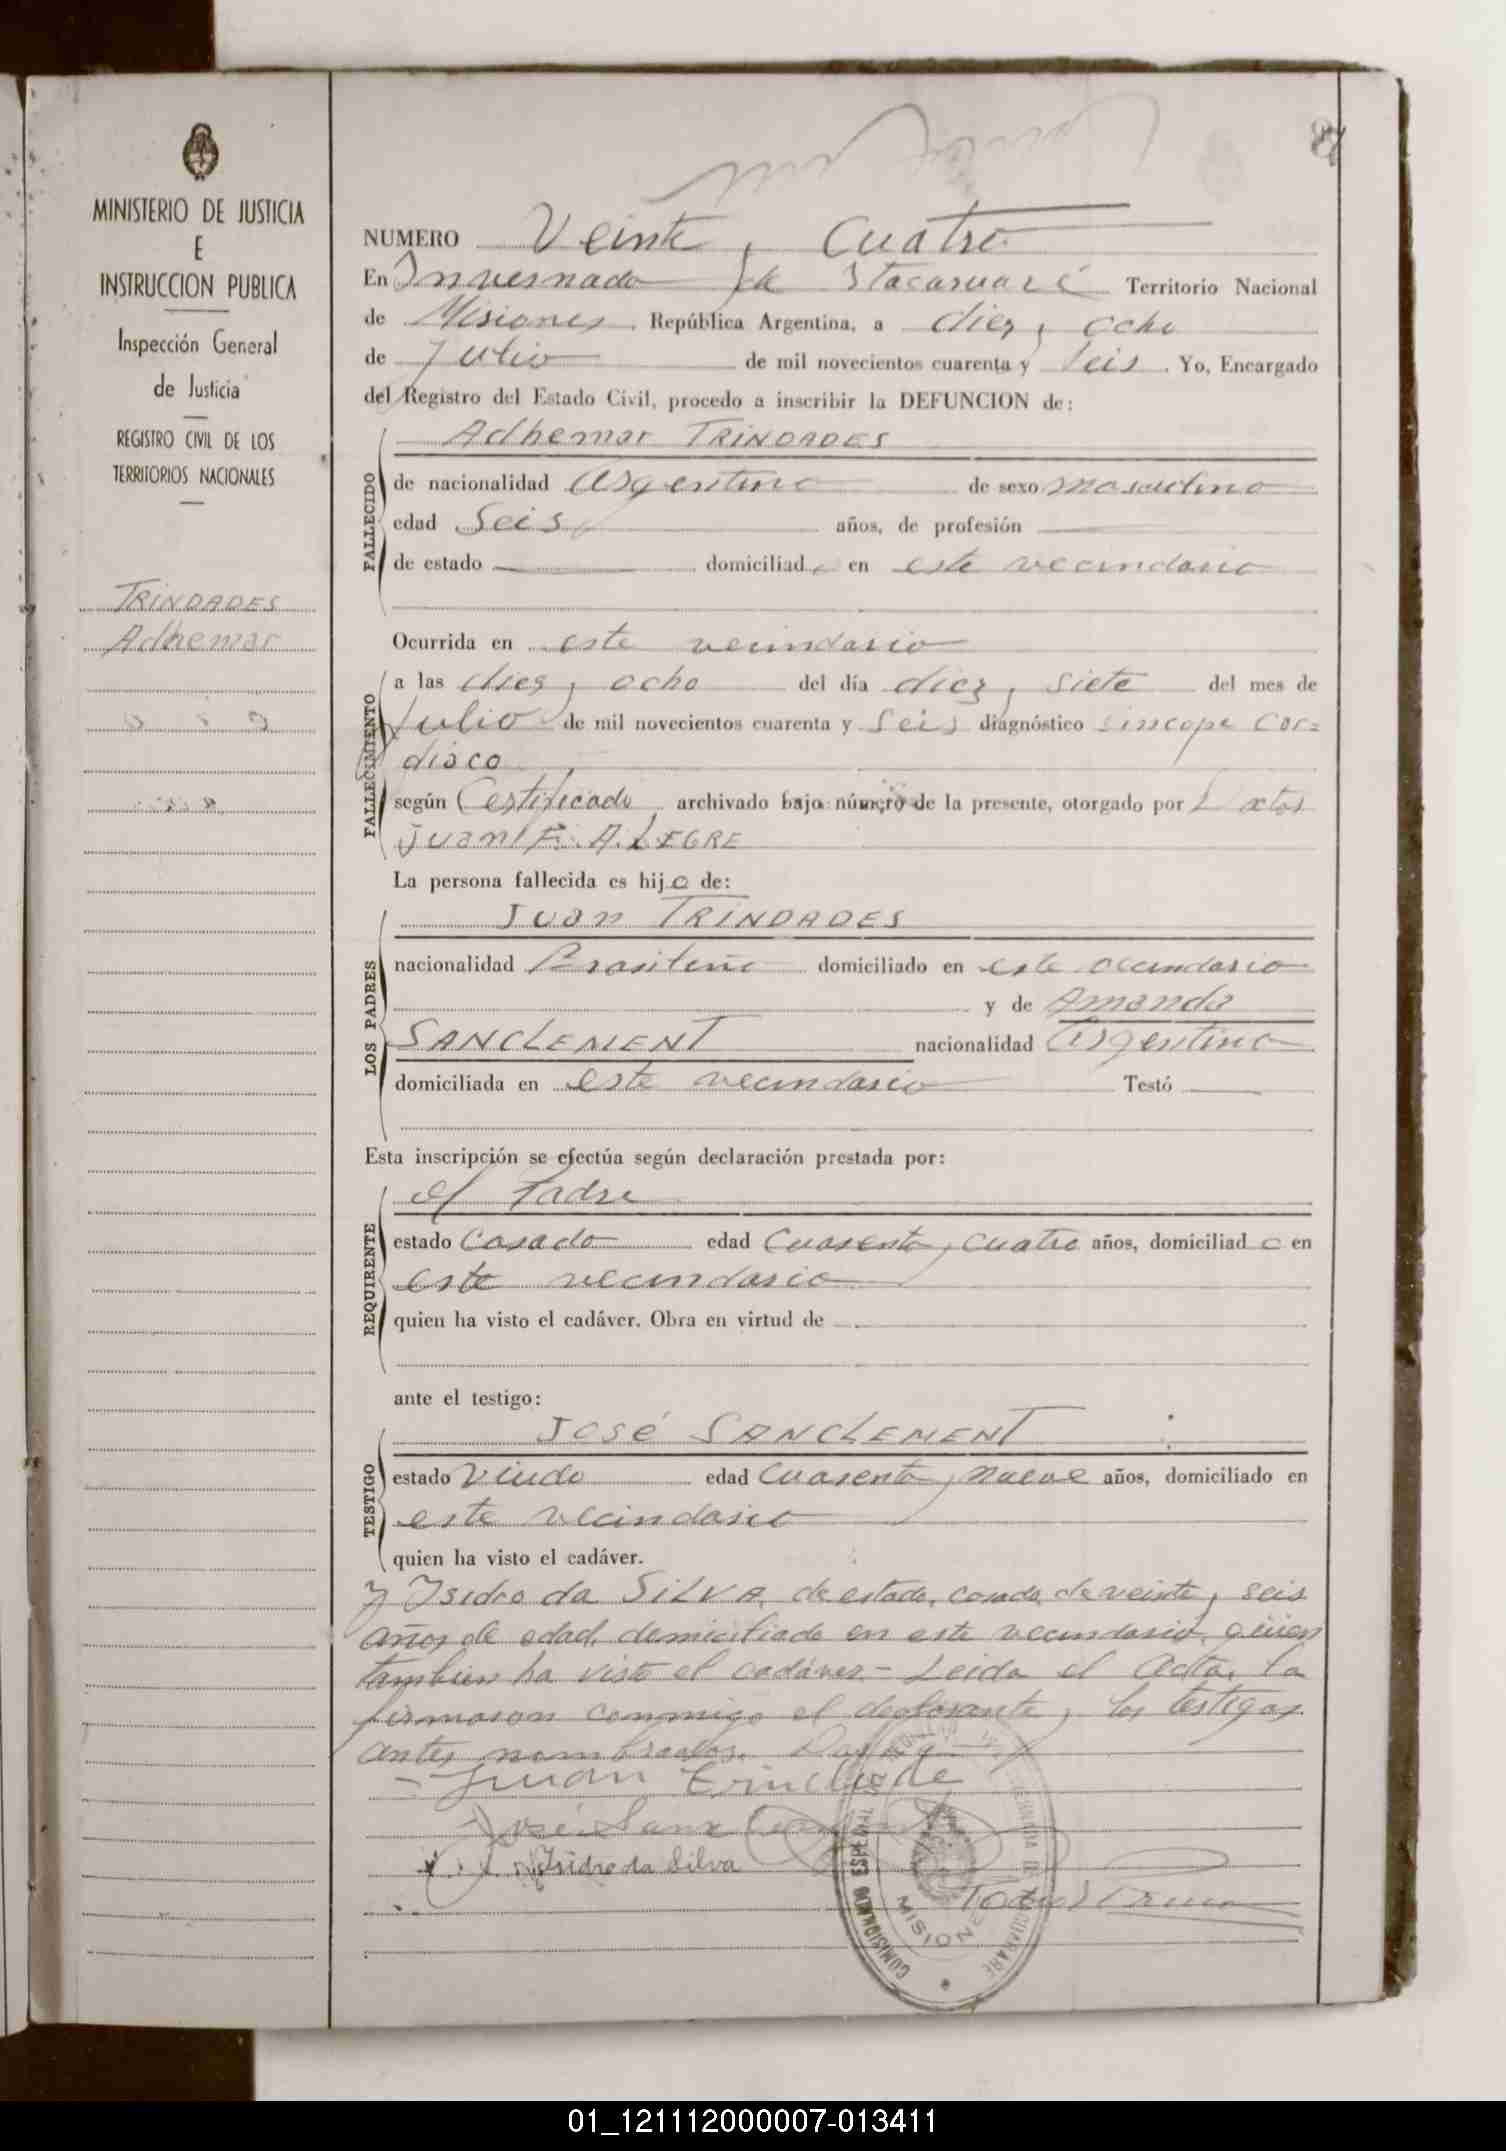 MINISTERIO DE JUSTICIA
E
INSTRUCCION PUBLICA
Inspección General
de Justicia
REGISTRO CIVIL DE LOS
TERRITORIOS NACIONALES
TRINDADES
Adhemar
NUMERO Veinte y Cuatro
En Invernada de Itacaruaré Territorio Nacional
de Misiones, República Argentina, a diez y ocho
de Julio de mil novecientos cuarenta y seis. Yo, Encargado
del Registro del Estado Civil, procedo a inscribir la DEFUNCION de:
FALLECIDO
Adhemar TRINDADES
de nacionalidad argentino de sexo masculino
edad Seis años, de profesión
de estado domiciliad en este vecindario
Ocurrida en este vecindario
FALLECIMIENTO
a las diez y ocho del día diez y siete del mes de
Julio de mil novecientos cuarenta y seis diagnóstico sincope car=
diaco
según Certificado archivado bajo número de la presente, otorgado por
Juan F. ALEGRE
La persona fallecida es hijo de:
LOS PADRES
Juan TRINDADES
nacionalidad Brasileño domiciliado en este vecindario
y de Amanda
SANCLEMENT nacionalidad Argentina
domiciliada en este vecindario Testó
Esta inscripción se efectúa según declaración prestada por:
REQUIRENTE
el Padre
estado Casado edad Cuarenta y cuatro años, domiciliado en
este vecindario
quien ha visto el cadáver. Obra en virtud de
ante el testigo:
TESTIGO
José SANCLEMENT
estado Viudo edad Cuarenta y nueve años, domiciliado en
este vecindario
quien ha visto el cadáver.
Y Isidro da SILVA, de estado, casado, de veinte y seis
años de edad, domiciliado en este vecindario, quien
tambien ha visto el cadáver.- Leida el Acta, la
firmaron conmigo el declarante y los testigos
antes nombrados.
Juan Trindade
José Sanclement
Isidro da Silva
COMISIONADO ESPECIAL
MISIONES
01_121112000007-013411